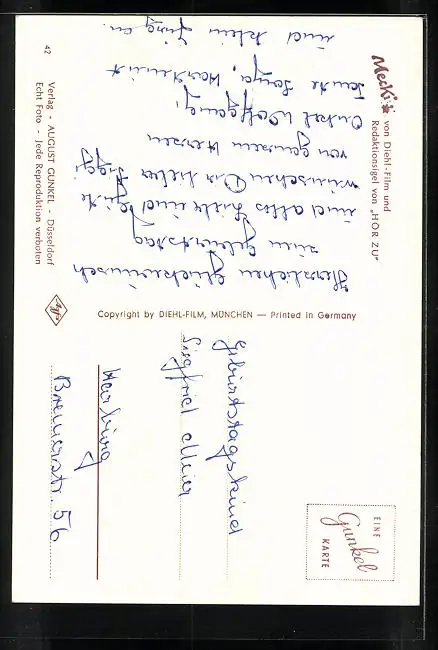 Mecki
von Diehl-Film und
Redaktionsigel von „HÖR ZU"
Herzlichen Glückwunsch
zum Geburtstag
und alles Liebe und Gute
wünschen Dir lieber Siggi
von ganzem Herzen
Onkel Wolfgang,
Tante Sonja,
und klein Jürgen.
42
Verlag - AUGUST GUNKEL - Düsseldorf
Echt Foto - Jede Reproduktion verboten
Agfa
Copyright by DIEHL-FILM, MÜNCHEN — Printed in Germany
EINE
Gunkel
KARTE
Geburtstagskind
Siegfried Meier
Harburg
Bremerstr. 56